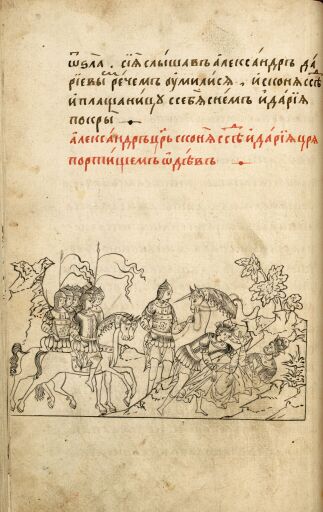 ѿѕла. сїѧ слышавъ александръ да
рїевы речемъ ѹмилисѧ, и сконѧ ссѣ
и плащаницѹ с себѧ снемъ и дарїѧ
покры
александръ црь сконѧ ссѣ и дарїѧ црѧ
портищемъ ѡдѣвъ